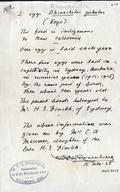 2 eggs Rhinochetus jubatus
(Kagu).
The bird is indigenous
to New Caledonia
One egg is laid each year
These two eggs were laid in
captivity in Sydney, Australia,
in successive years (1915 1916)
by the same pair of birds,
then about ten years old.
The parent birds belonged to
Mr. H. E. Finckh, of Sydney.
The above information was
given me by Mrs C. A.
Messmer, daughter of the
late H. E. Finckh.